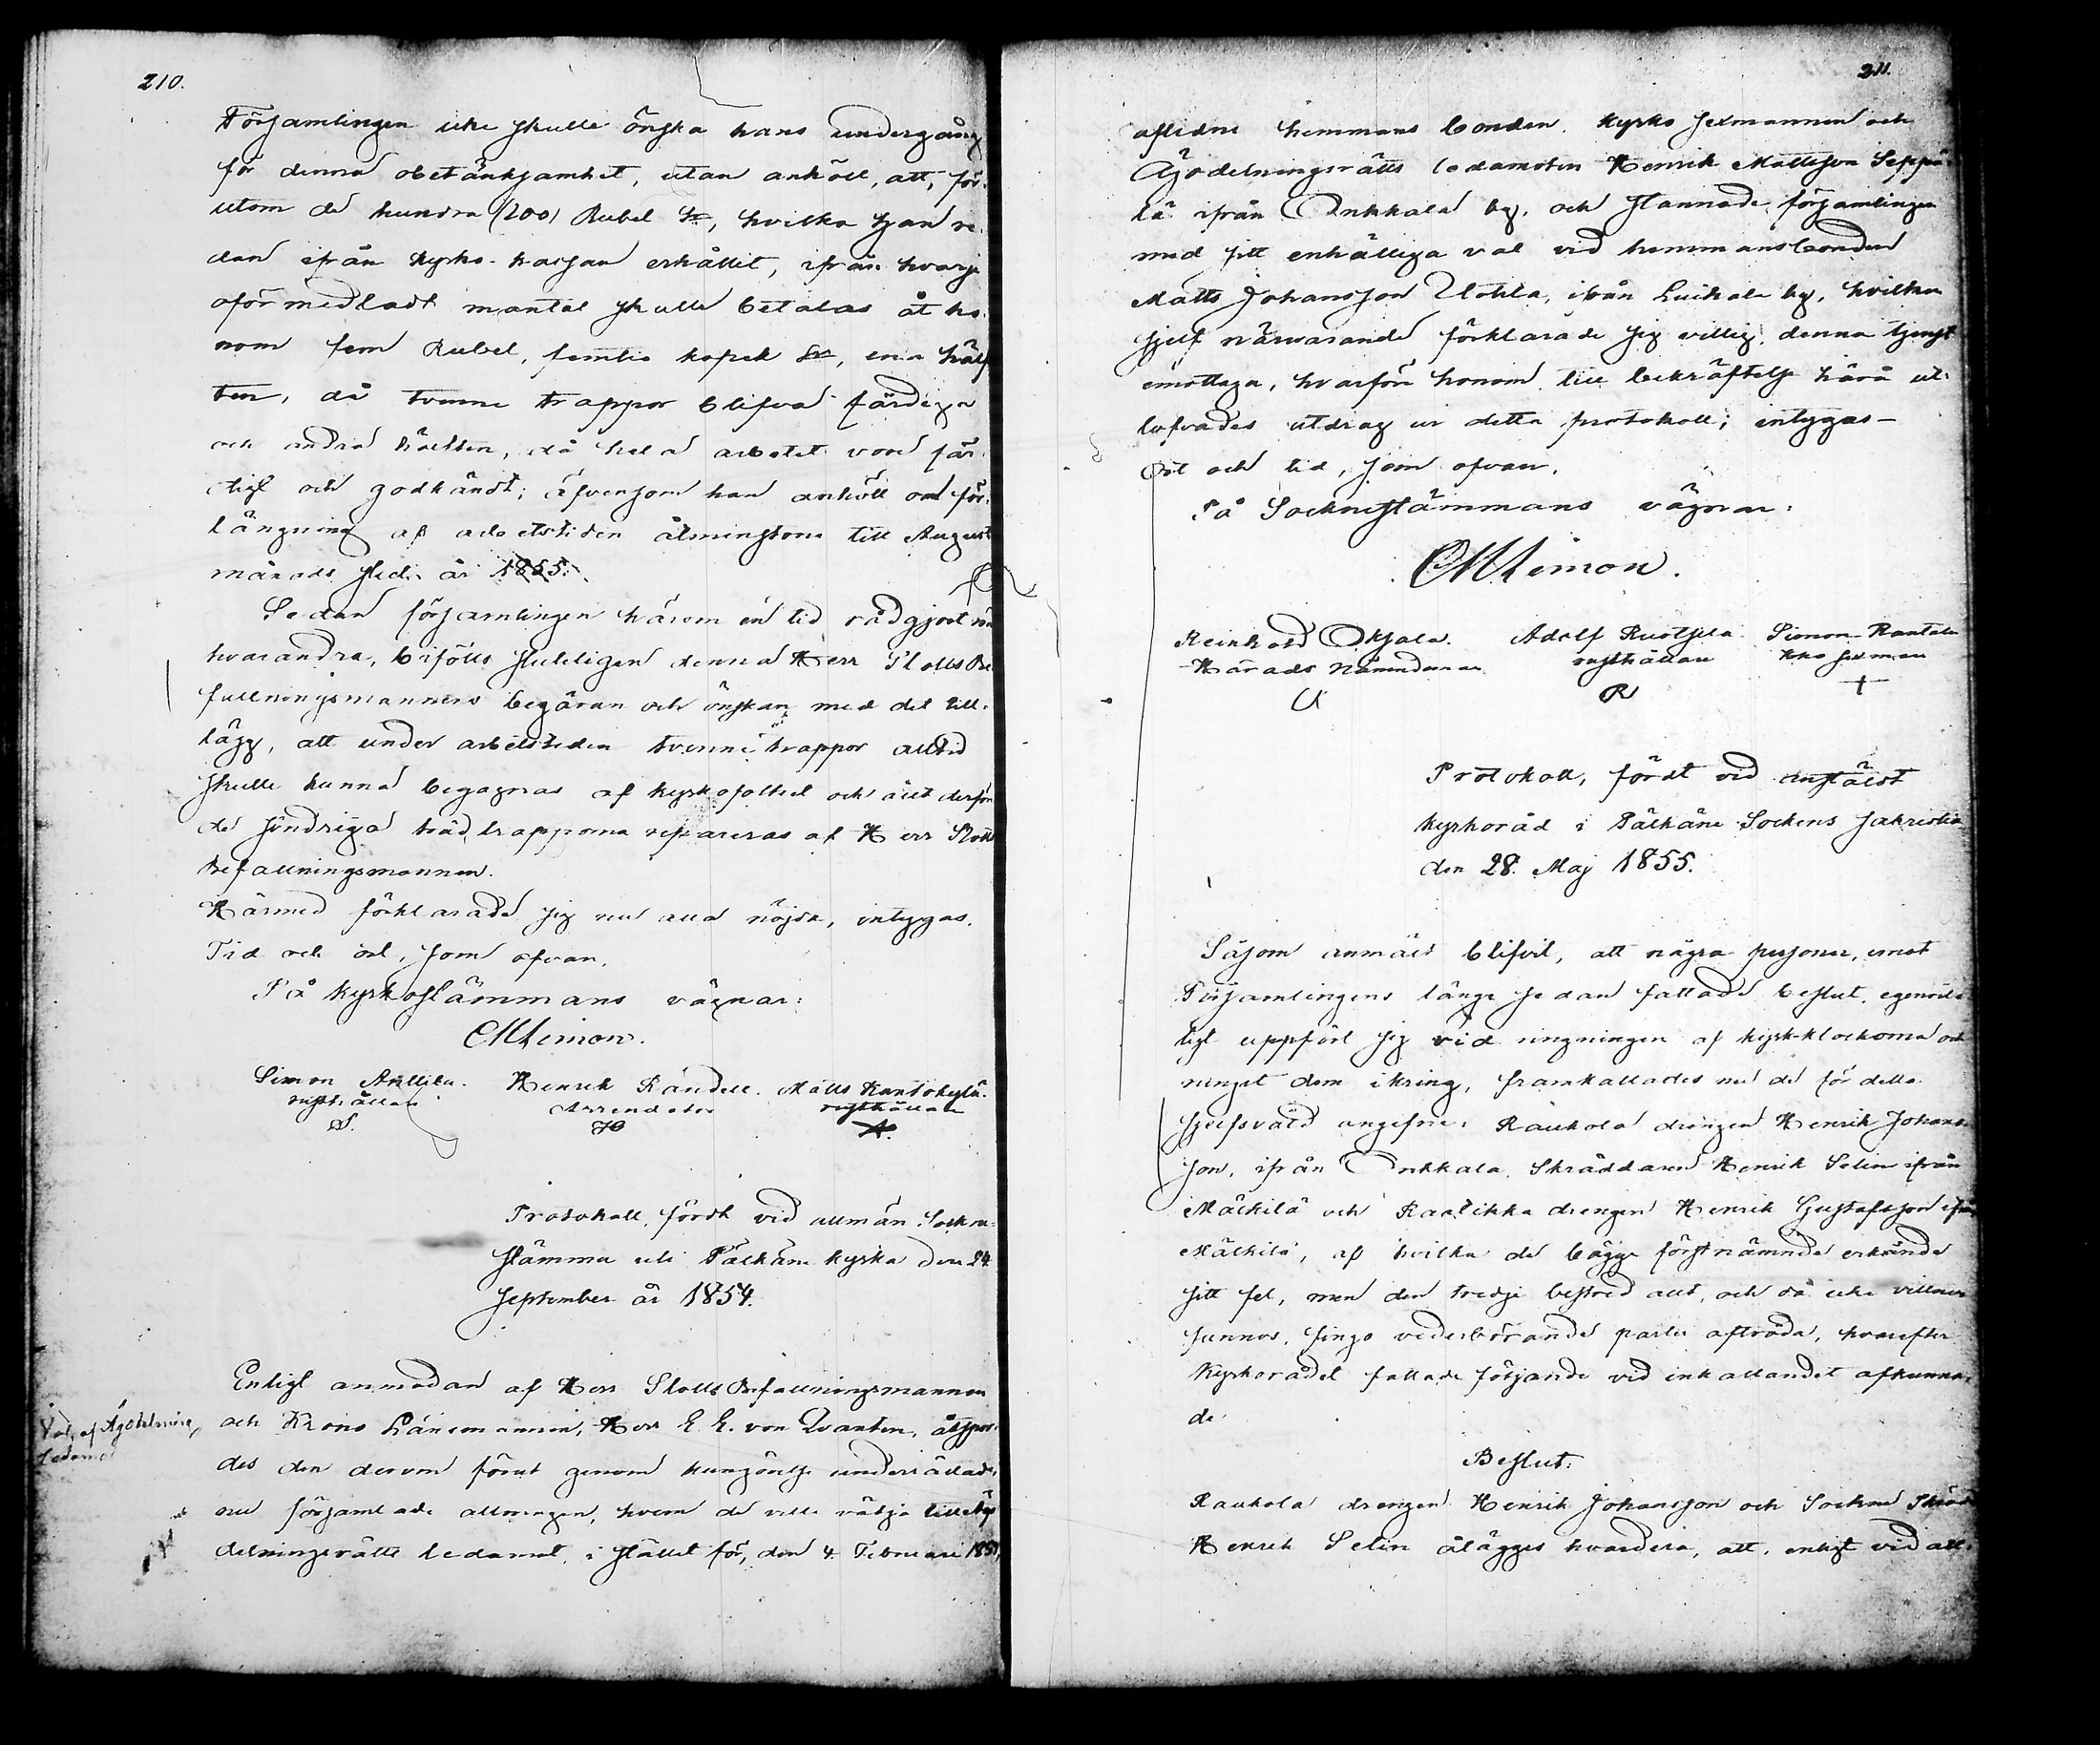 210.
Församlingen icke skulle önska hans undergång
för denna obetänksamhet, utan anhöll, att, för-
utom de hundra (200) Rubel Sr, hvilka han re-
dan ifrån Kyrko-kassan erhållit, ifrån hvarje
oförmedladt mantal skulle betalas åt ho-
nom fem Rubel, femtio kopek Sr, ena hälf-
ten, då tvenne trappor blifva färdiga
och andra hälften, då hela arbetet vore fär-
digt och godkändt; äfvensom han anhöll om för-
längning af arbetstiden åtminstone till Augusti
månads slut år 1855.
Sedan församlingen härom en tid rådgjort med
hvarandra, bifölls slutligen denna Herr SlottsBe-
fallningsmannens begäran och önskan med det till-
lägg, att under arbetstiden tvenne trappor alltid
skulle kunna begagnas af kyrkofolket och att derföre
de söndriga träd trapporna repareras af Herr Slotts
Befallningsmannen.
Härmed förklarade sig nu alla nöjda, intygas.
Tid och ort, som ofvan.
På Kyrkostämmans vägnar:
CMLimon.
Simon Anttila. Henrik Rändell. Matts Rantokylä.
rusthållare Arrendator rusthållare
S. HR A.
Protokoll, fördt vid allmän Sockne-
stämma uti Pälkäne kyrka den 24
September år 1854.
Val af Ägodelnings
Ledamot
Enligt anmodan af Herr Slotts Befallningsmannen
och Krono Länsmannen, Herr E. E. von Qvanten, åtspor-
des den derom förut genom kungörelse underrättade,
nu församlade allmogen, hvem de ville välja till ägo-
delningsrätts ledamot, i stället för, den 4. Februari 1854
211.
aflidne hemmans bonden, Kyrko sexmannen och
Ägodelningsrätts ledamoten Henrik Mattsson Seppä-
lä ifrån Onkkala by, och stannade församlingen
med sitt enhälliga val vid hemmansbonden
Matts Johansson Uotila, ifrån Luikala by, hvilken
sjelf närvarande förklarade sig villig denna tjenst
emottaga, hvarföre honom till bekräftelse härå ut-
lofvades utdrag ur detta protokoll; intygas –
Ort och tid, som ofvan.
På Socknestämmans vägnar:
CMLimon.
Reinhold Ohjala. Adolf Ruotsila Simon Rantala
Härads Nämndeman rusthållare Kko sexman
R +
Protokoll, fördt vid anstäldt
kyrkoråd i Pälkäne Sockens Sakristia
den 28. Maj 1855.
Såsom anmäldt blifvit, att några personer, emot
Församlingens länge sedan fattade beslut, egenvil-
ligt uppfört sig vid ringningen af kyrk-klockorna och
ringet dem ikring, framkallades nu de för detta
sjelfsvåld angifne: Raukola drängen Henrik Johans-
son, ifrån Onkkala, Skräddaren Henrik Selin ifrån
Mälkilä och Raatikka drengen Henrik Gustafsson ifrån
Mälkilä, af hvilka de bägge förstnämnde erkände
sitt fel, men den tredje bestred allt, och då icke vittnen
funnos, fingo vederbörande parter afträda, hvarefter
Kyrkorådet fattade följande vid inkallandet afkunna-
de
Beslut:
Raukola drengen Henrik Johansson och Sockne Skräd-
Henrik Selin ålägges hvardera, att, enligt vid all-